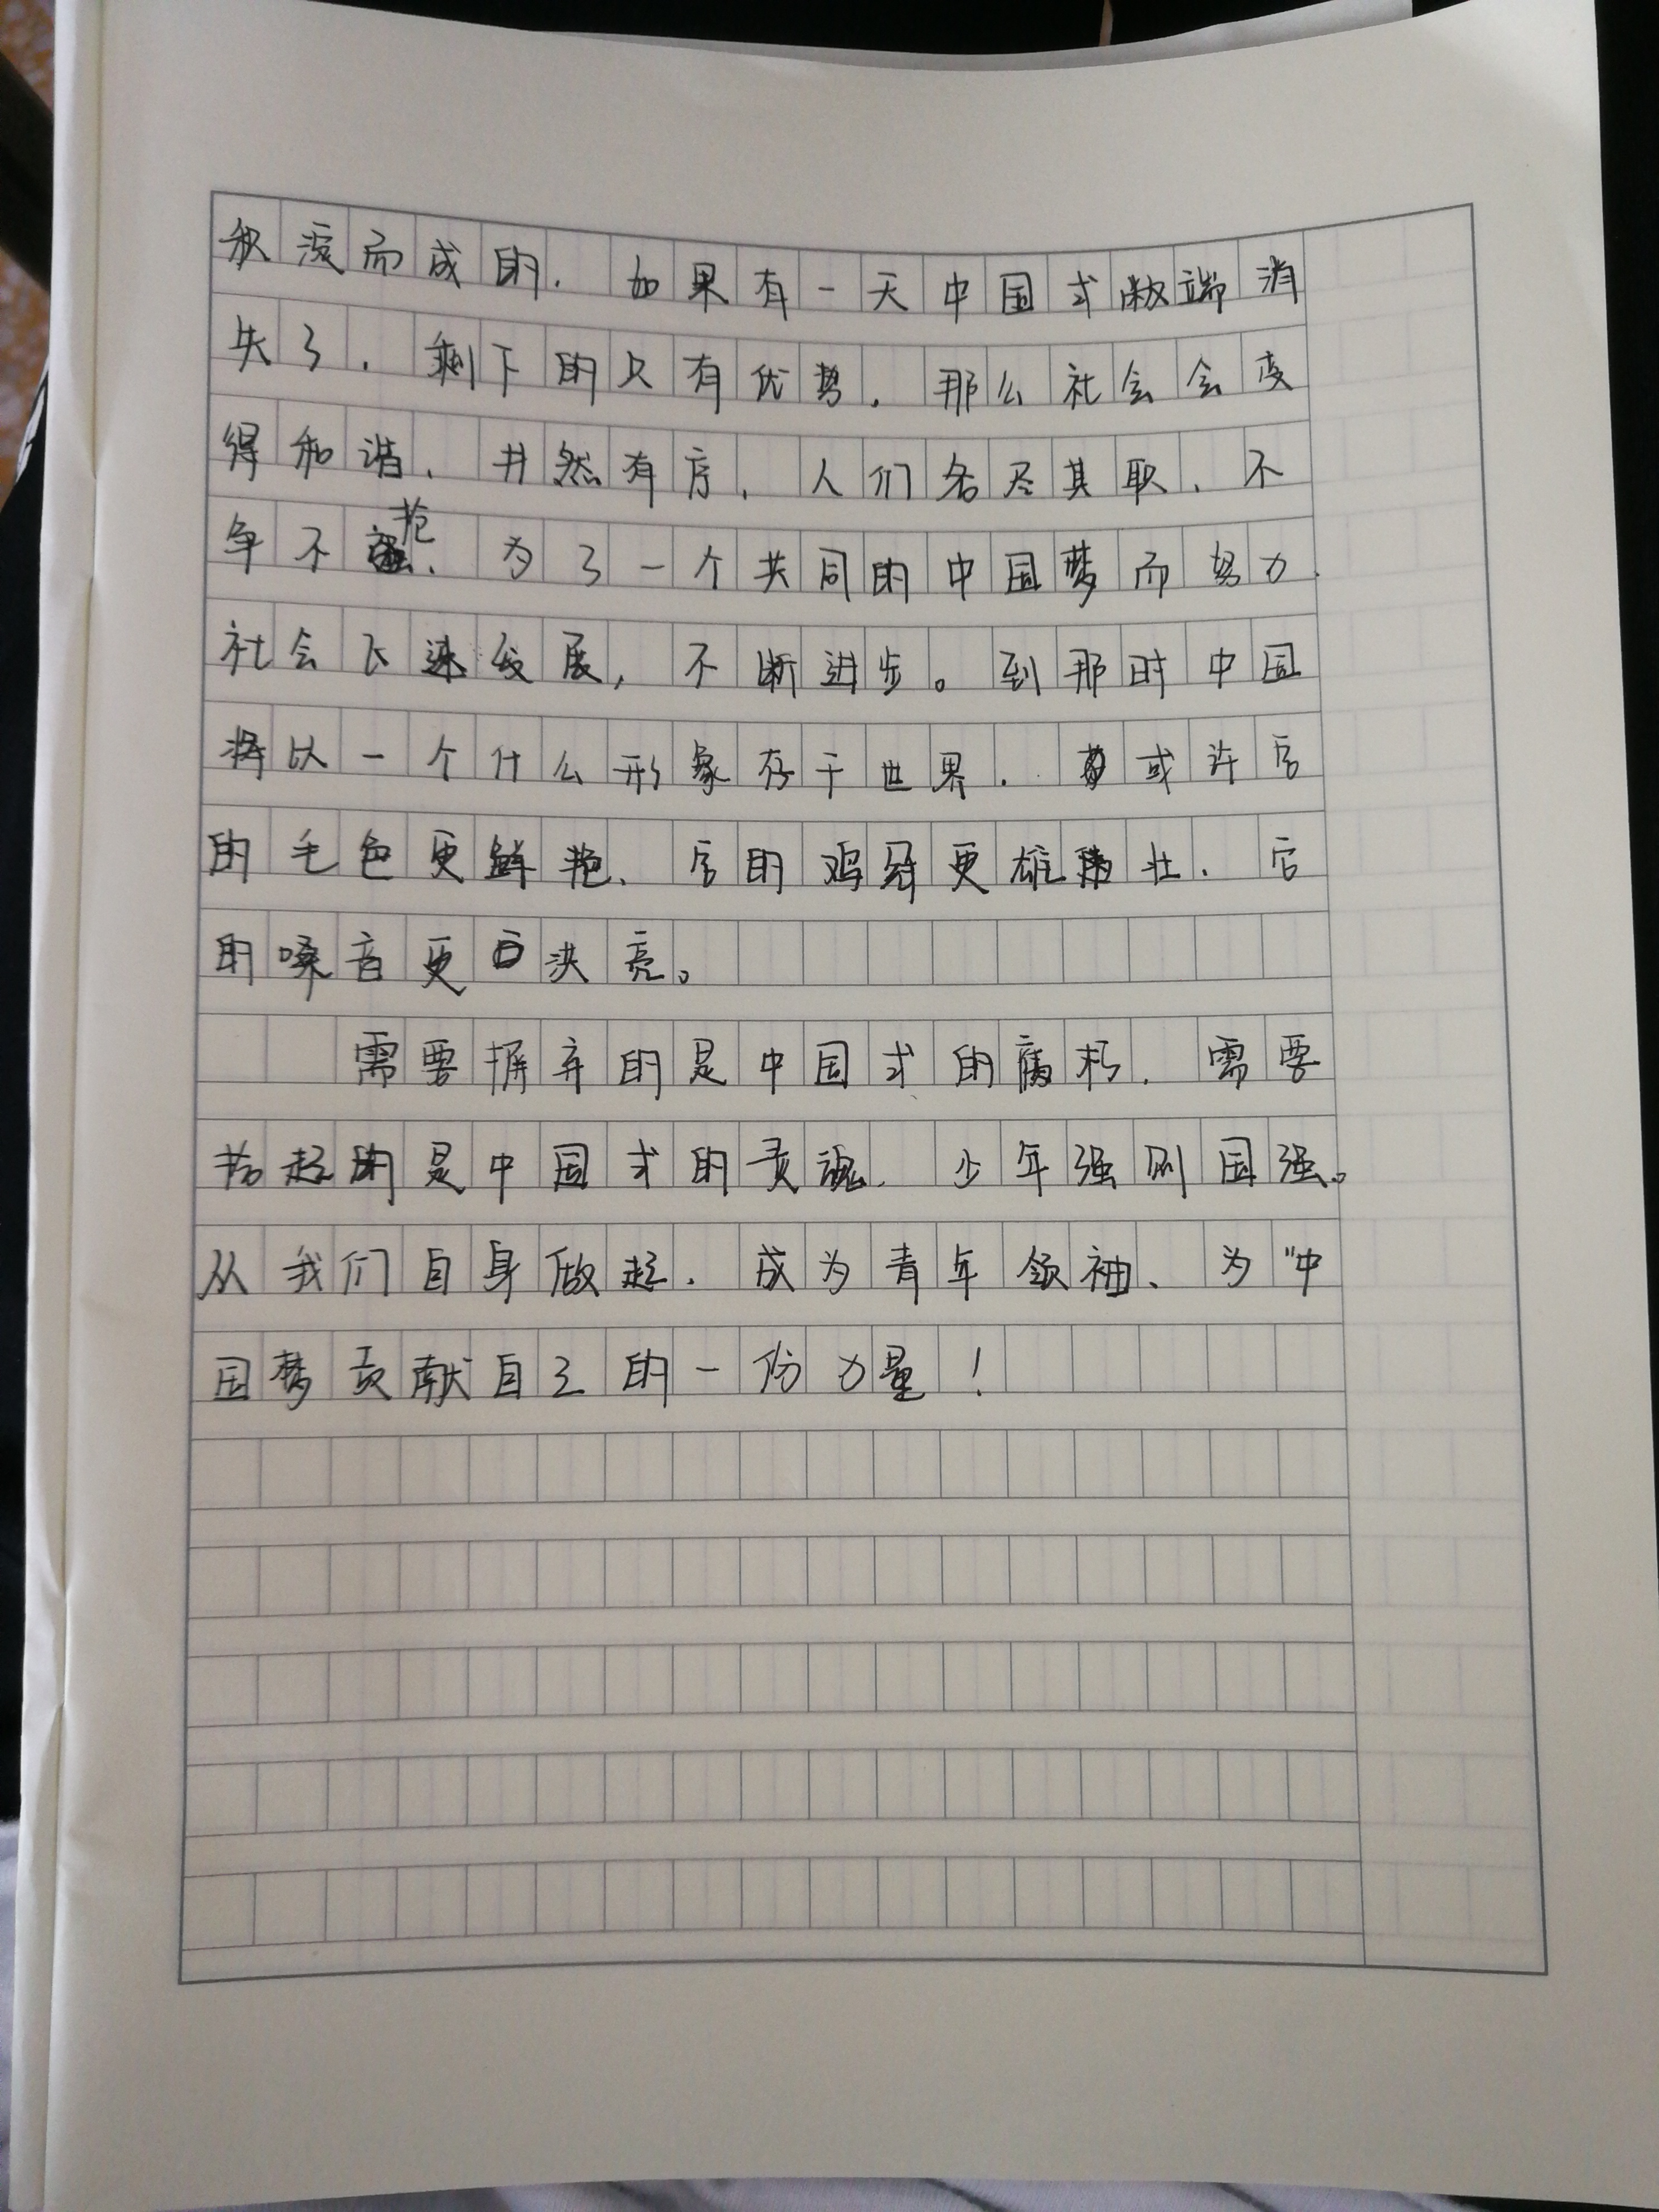 积淀而成的，如果有一天中国式弊端消
失了，剩下的只有优势，那么社会会变
得和谐，井然有序，人们各尽其职，不
争不抢，为了一个共同的中国梦而努力，
社会飞速发展，不断进步。到那时中国
将以一个什么形象存于世界，或许它
的毛色更鲜艳，它的鸡冠更雄壮，它
的嗓音更洪亮。
需要摒弃的是中国式的腐朽，需要
拾起的是中国式的灵魂，少年强则国强。
从我们自身做起，成为青年领袖，为“中
国梦贡献自己的一份力量！